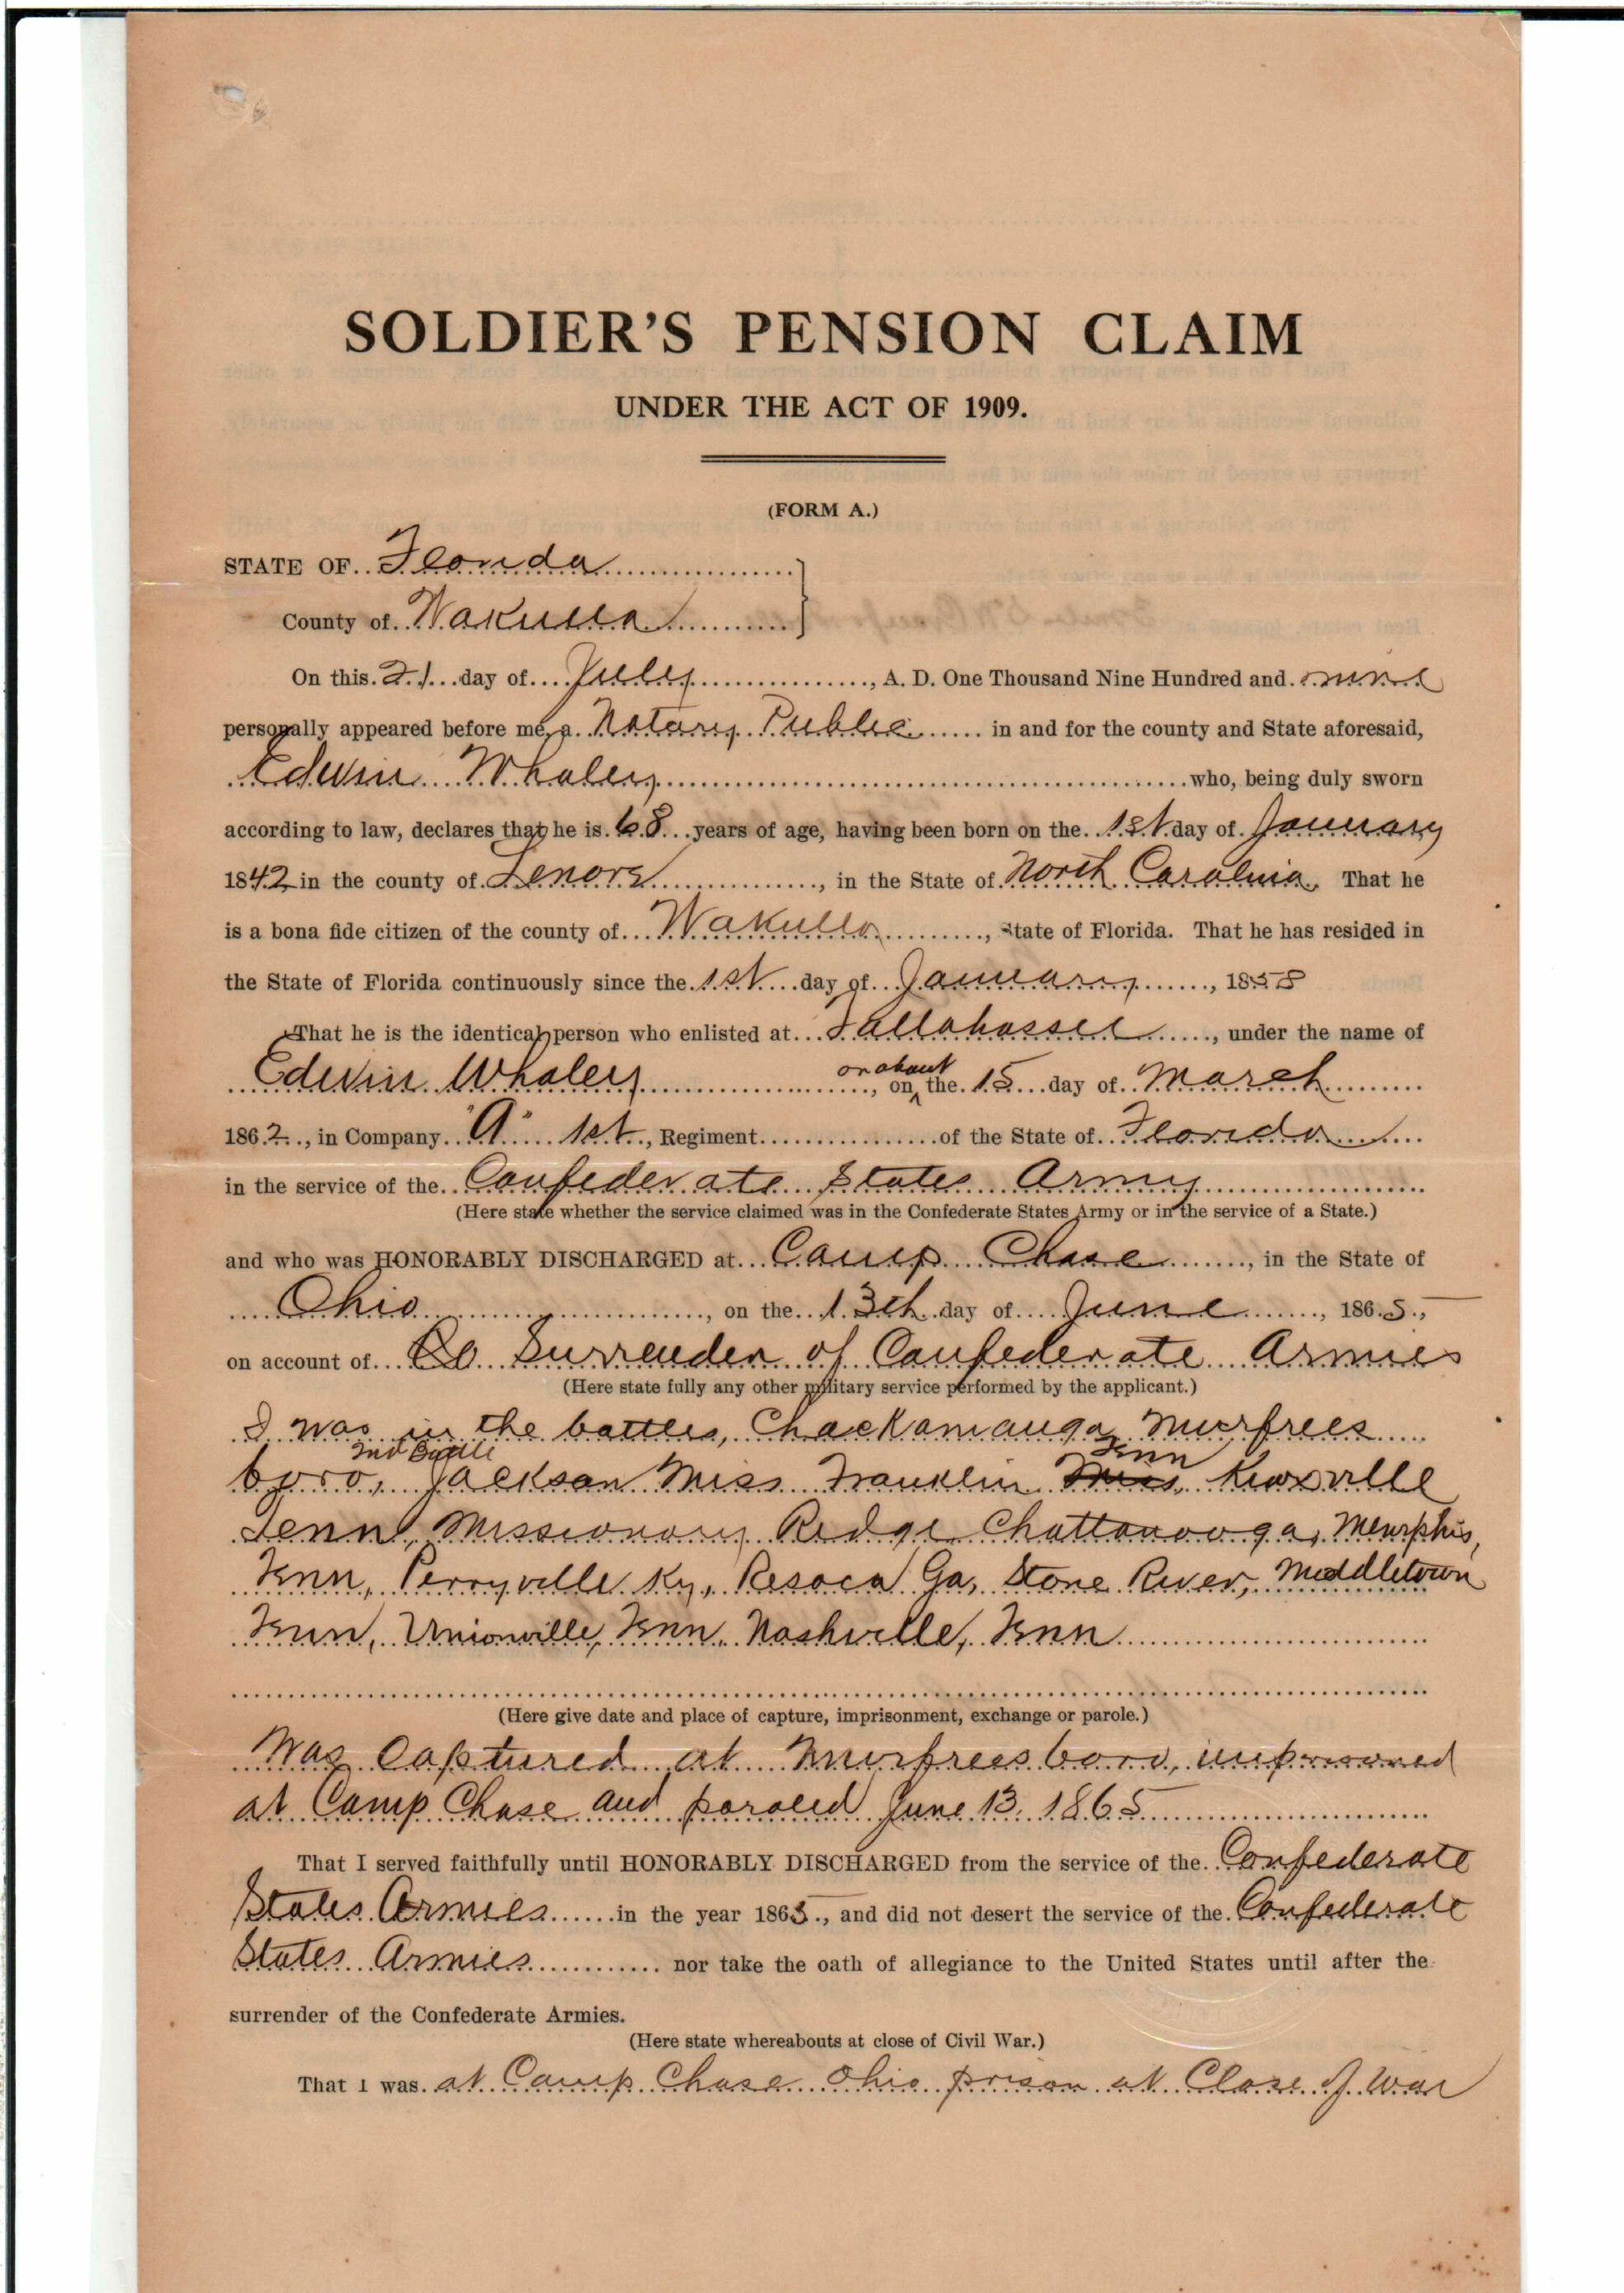 SOLDIER'S PENSION CLAIM
UNDER THE ACT OF 1909.
(FORM A.)
STATE OF Florida
County of Wakulla
On this 21 day of July, A. D. One Thousand Nine Hundred and nine
personally appeared before me, a Notary Public in and for the county and State aforesaid,
Edwin Whaley who, being duly sworn
according to law, declares that he is 68 years of age, having been born on the 1st day of January
1842 in the county of Lenore, in the State of North Carolina. That he
is a bona fide citizen of the county of Wakulla, State of Florida. That he has resided in
the State of Florida continuously since the 1st day of January, 1858
That he is the identical person who enlisted at Tallahassee, under the name of
Edwin Whaley, on or about the 15 day of March
1862, in Company "A" 1st, Regiment of the State of Florida
in the service of the Confederate States Army
(Here state whether the service claimed was in the Confederate States Army or in the service of a State.)
and who was HONORABLY DISCHARGED at Camp Chase, in the State of
Ohio, on the 13th day of June, 1865,
on account of Surrender of Confederate Armies
(Here state fully any other military service performed by the applicant.)
I was in the battles, Chackamauga Murfrees
boro, 2nd Battle Jackson Miss Franklin Tenn Knoxville
Tenn, Missionary Ridge Chattanooga, Memphis,
Tenn, Perryville Ky, Resaca Ga, Stone River, Middletown
Tenn, Unionville, Tenn. Nashville, Tenn
(Here give date and place of capture, imprisonment, exchange or parole.)
Was Captured at Murfreesboro, imprisoned
at Camp Chase and paroled June 13, 1865
That I served faithfully until HONORABLY DISCHARGED from the service of the Confederate
States Armies in the year 1865, and did not desert the service of the Confederate
States Armies nor take the oath of allegiance to the United States until after the
surrender of the Confederate Armies.
(Here state whereabouts at close of Civil War.)
That I was at Camp Chase Ohio prison at Close of War